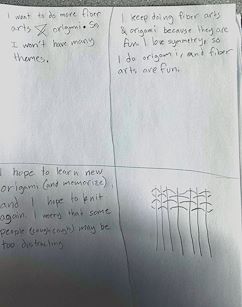 I want to do more fiber
arts origami. So
I won't have many
themes.
I keep doing fiber arts
& origami because they are
fun. I love symmetry, so
I do origami, and fiber
arts are fun.
I hope to learn new
origami (and memorize),
and I hope to knit
again. I worry that some
people (cough cough) may be
too distracting